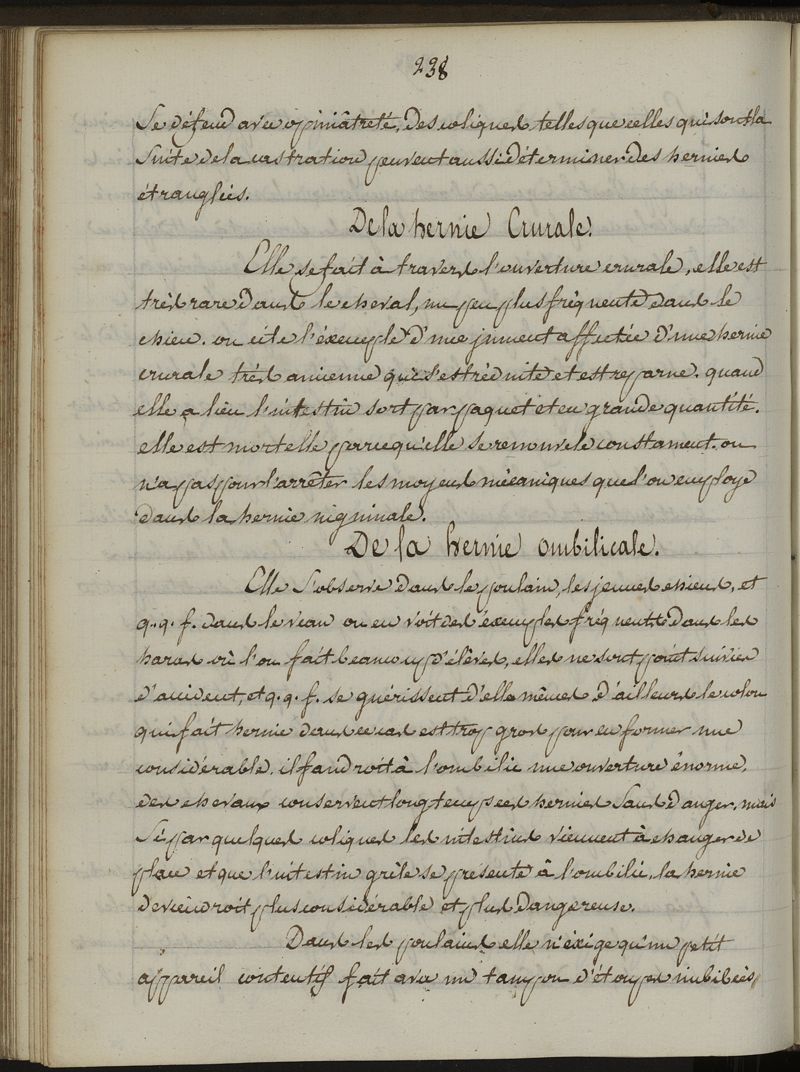 238
Se défend avec opiniâtreté, des coliques telles que celles qui sont la
Suite de la castration peuvent aussi déterminer des hernies
étranglées.
De la hernie Crurale.
Elle se fait à travers l'ouverture crurale, elle est
très rare dans le cheval, un peu plus fréquente dans le
chien. on cite l'éxemple d'une jument affectée d'une hernie
crurale très ancienne qui s'est réduite et est reparue. quand
elle a lieu l'intestin sort par paquet et en grande quantité.
elle est mortelle parcequ'elle se renouvele constament. on
n'a pas pour l'arrêter les moyens mécaniques que l'on employe
dans la hernie niguinale.
De la hernie ombilicale.
Elle S'observe dans le poulain, les jeunes chiens, et
q. q. f. dans le veau on en voit des éxemples fréquents dans les
haras où l'on fait beaucoup d'élèves, elles ne sont point suivies
d'accident, et q. q. f. se guérissent d'elle mêmes d'ailleurs le colon
qui fait hernie dans ce cas est trop gros pour en former une
considérable. il faudroit à l'ombilic une ouverture énorme.
des chevaux conservent longtemps ces hernies Sans danger, mais
Si par quelques coliques les intestins viennent à changer de
place et que l'intestin grêle se présente à l'ombilic, la hernie
deviendroit plus considérable et plus dangereuse.
Dans les poulains elle n'éxige qu'un petit
appareil contentif fait avec un tampon d'étoupes imbibées